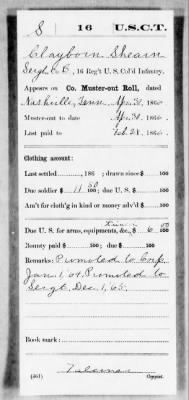 S 16 U.S.C.T.
Clayborn Shearn
Sergt, Co. E, 16 Reg't U. S. Col'd Infantry.
Appears on Co. Muster-out Roll, dated
Nashville, Tenn. Apr. 30, 1866
Muster-out to date Apr. 30, 1866
Last paid to Feb. 28, 1866
Clothing account:
Last settled, 186 ; drawn since $ 100
Due soldier $ 11 50/100; due U. S. $ 100
Am't for cloth'g in kind or money adv'd $ 100
Due U. S. for arms, equipments, &c., $ 6 00/100
Bounty paid $ 100; due $ 100
Remarks: Promoted to Corp.
Jan. 1, '64. Promoted to
Sergt. Dec. 1, '65.
Book mark:
(361) Copyist.